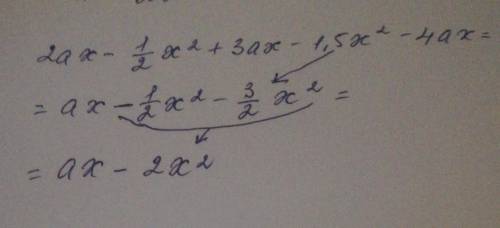 2ax - 1/2 x² + 3ax - 1,5x² - 4ax =
= ax - 1/2 x² - 3/2 x² =
= ax - 2x²